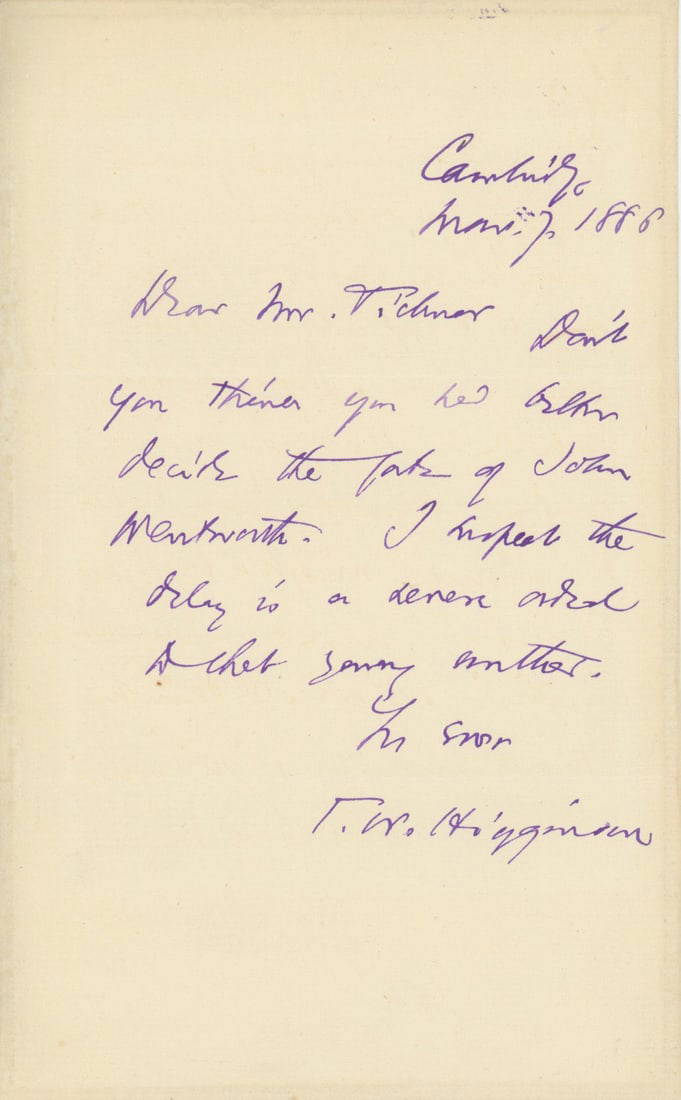 Cambridge
Mar. 7, 1886
Dear Mr. Ticknor
Don't
you think you had better
decide the fate of John
Wentworth. I suspect the
delay is a severe ordeal
to that young author.
T. W. Higginson